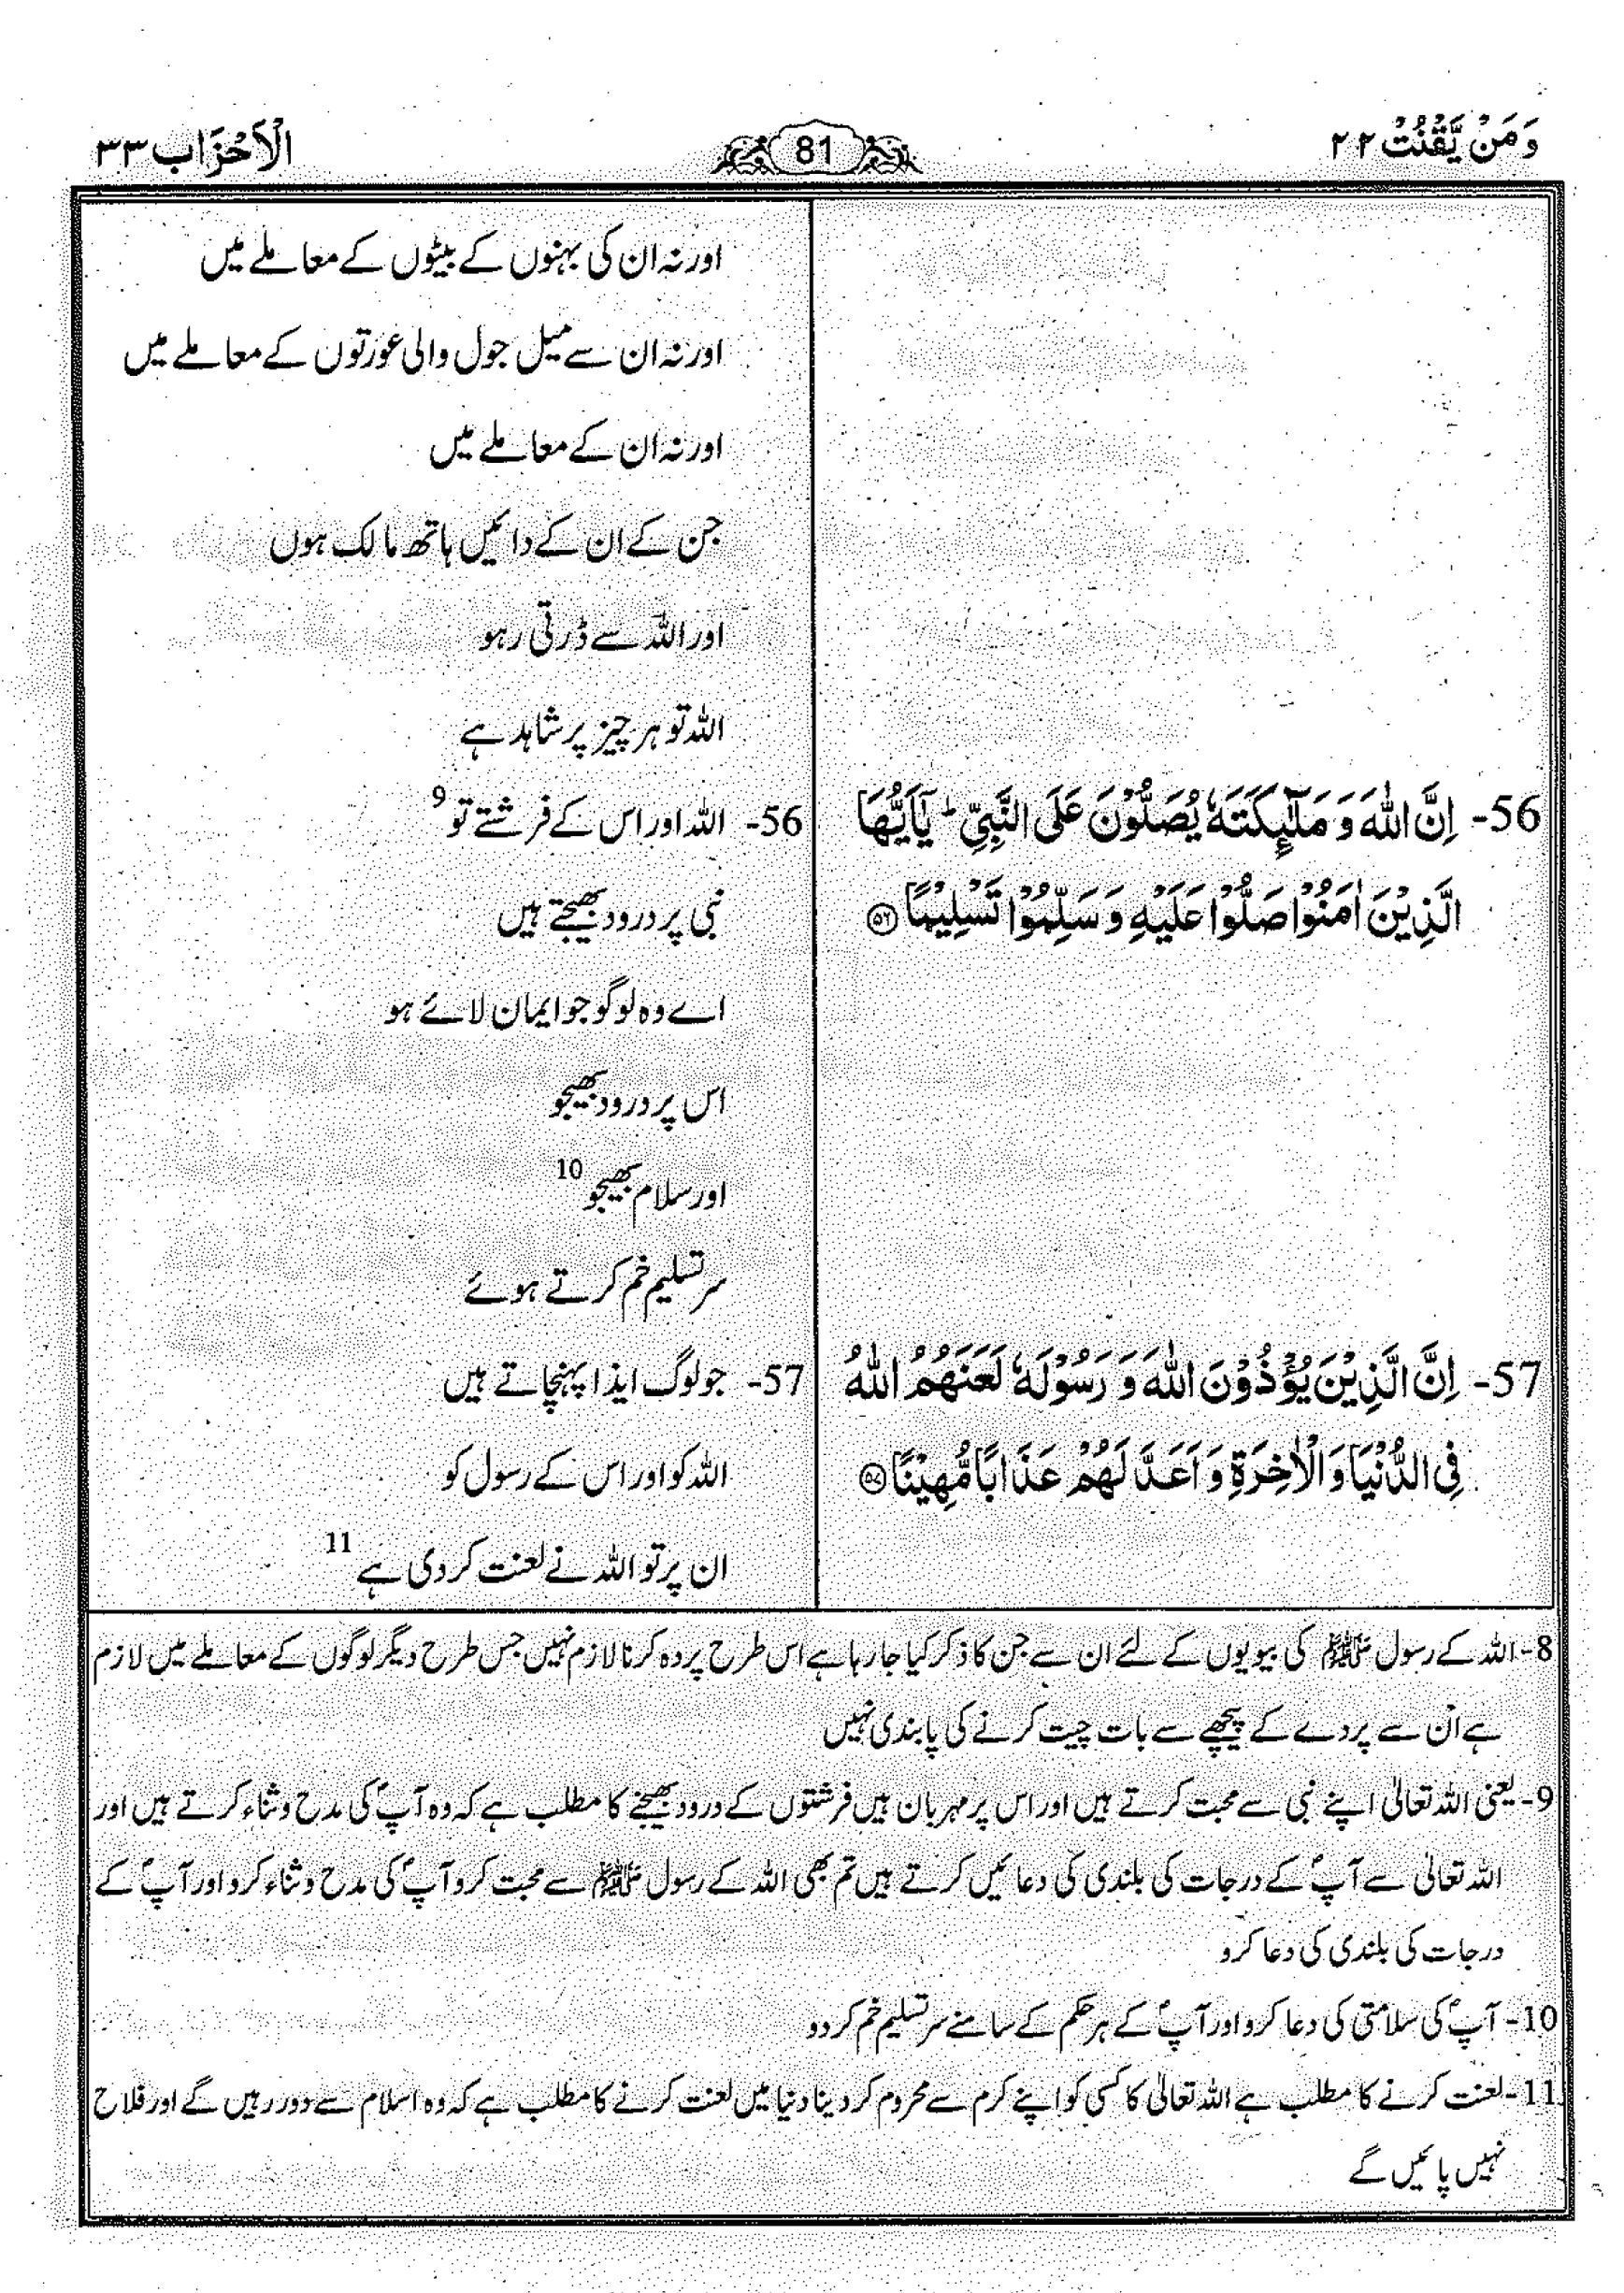 وَمَنْ يَّقْنُتْ ۲۲
81
الْاَحْزَاب ۳۳
اور نہ ان کی بہنوں کے بیٹوں کے معاملے میں
اور نہ ان سے میل جول والی عورتوں کے معاملے میں
اور نہ ان کے معاملے میں
جن کے ان کے دائیں ہاتھ مالک ہوں
اور اللہ سے ڈرتی رہو
اللہ تو ہر چیز پر شاہد ہے
56- اِنَّ اللّٰهَ وَ مَلٰٓئِكَتَهٗ يُصَلُّوْنَ عَلَى النَّبِيِّ ؕ يٰۤاَيُّهَا
الَّذِيْنَ اٰمَنُوْا صَلُّوْا عَلَيْهِ وَ سَلِّمُوْا تَسْلِيْمًا ﴿۵۶﴾
56- اللہ اور اس کے فرشتے تو 9
نبی پر درود بھیجتے ہیں
اے وہ لوگو جو ایمان لائے ہو
اس پر درود بھیجو
اور سلام بھیجو 10
سر تسلیم خم کرتے ہوئے
57- اِنَّ الَّذِيْنَ يُؤْذُوْنَ اللّٰهَ وَ رَسُوْلَهٗ لَعَنَهُمُ اللّٰهُ
فِي الدُّنْيَا وَ الْاٰخِرَةِ وَ اَعَدَّ لَهُمْ عَذَابًا مُّهِيْنًا ﴿۵۷﴾
57- جو لوگ ایذا پہنچاتے ہیں
اللہ کو اور اس کے رسول کو
ان پر تو اللہ نے لعنت کر دی ہے 11
8- اللہ کے رسول ﷺ کی بیویوں کے لئے ان سے جن کا ذکر کیا جا رہا ہے اس طرح پردہ کرنا لازم نہیں جس طرح دیگر لوگوں کے معاملے میں لازم
ہے ان سے پردے کے پیچھے سے بات چیت کرنے کی پابندی نہیں
9- یعنی اللہ تعالیٰ اپنے نبی سے محبت کرتے ہیں اور اس پر مہربان ہیں فرشتوں کے درود بھیجنے کا مطلب ہے کہ وہ آپؐ کی مدح و ثناء کرتے ہیں اور
اللہ تعالیٰ سے آپؐ کے درجات کی بلندی کی دعائیں کرتے ہیں تم بھی اللہ کے رسول ﷺ سے محبت کرو آپؐ کی مدح و ثناء کرو اور آپؐ کے
درجات کی بلندی کی دعا کرو
10- آپؐ کی سلامتی کی دعا کرو اور آپؐ کے ہر حکم کے سامنے سر تسلیم خم کر دو
11- لعنت کرنے کا مطلب ہے اللہ تعالیٰ کا کسی کو اپنے کرم سے محروم کر دینا دنیا میں لعنت کرنے کا مطلب ہے کہ وہ اسلام سے دور رہیں گے اور فلاح
نہیں پائیں گے